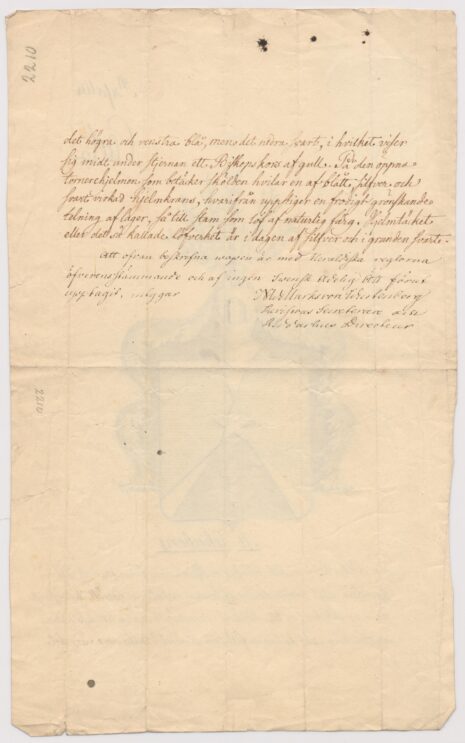 2210
det högra och venstra blå, men det nedra svart, i hvilket viser
sig midt under stjernan ett Biskops kors af gull. På den öppna
torner hjelmen som betäcker skölden hvilar en af blått, silfver och
svart virkad hjelmkrans, hvarifrån uppstiger en frodigt grönskande
telning af lager, så till stam som löf af naturlig färg. Hjelmtäcket
eller det så kallade löfverket är i dagen af silfver och i grunden svart.
Att ofvan beskrifna wapen är med Heraldiska reglorna
öfverensstämmande och af ingen Svensk Adelig ätt förut
upptagit, intygar
Marks von Würtenberg
Secreteren
Directeur
2210